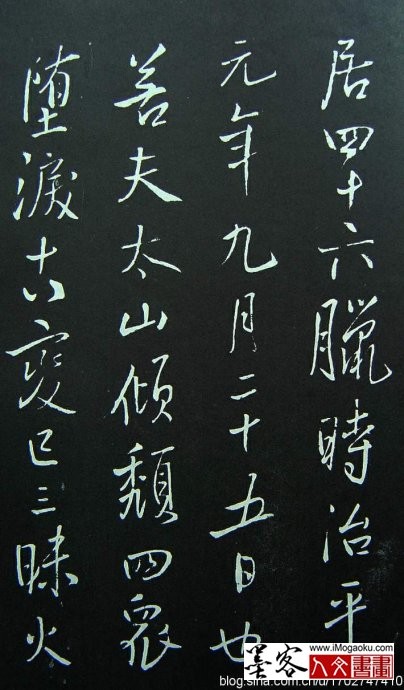 居四十六臘時治平
元年九月二十五日也
若夫太山傾頹四衆
墮淚十八變已三昧火
墨客
www.iMogaoku.com
人文書畫
blog.sina.com.cn/u/1702747410